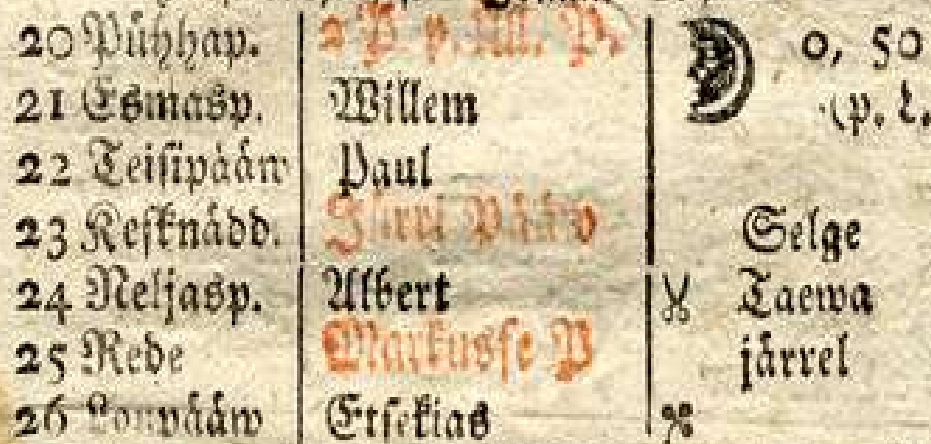 20 Pühhap. 2 P. p. Ül. P. 0, 50
21 Esmasp. Willem (p. L.
22 Teisipääw Paul
23 Kesknädd. Jürri Pääw Selge
24 Neljasp. Albert Taewa
25 Rede Markusse P järrel
26 Loupääw Etsekias